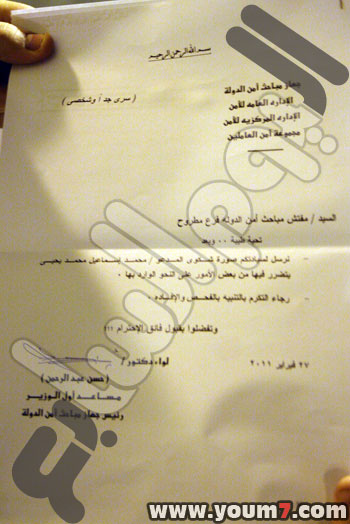 بسم الله الرحمن الرحيم
جهاز مباحث أمن الدولة
الإدارة العامة للأمن
الإدارة المركزيه للأمن
مجموعة أمن العاملين
( سرى جداً وشخصى )
السيد / مفتش مباحث أمن الدوله فرع مطروح
تحية طيبة ٠٠ وبعد
- نرسل لسيادتكم صورة شكوى المدعو / محمد إسماعيل محمد يحيى
يتضرر فيها من بعض الأمور على النحو الوارد بها ٠
- رجاء التكرم بالتنبيه بالفحص والإفاده ٠
وتفضلوا بقبول فائق الإحترام !!!
٢٧ فبراير ٢٠١١
لواء دكتور /
( حسن عبد الرحمن )
مساعد أول الوزير
ورئيس جهاز مباحث أمن الدولة
اليوم السابع
www.youm7.com